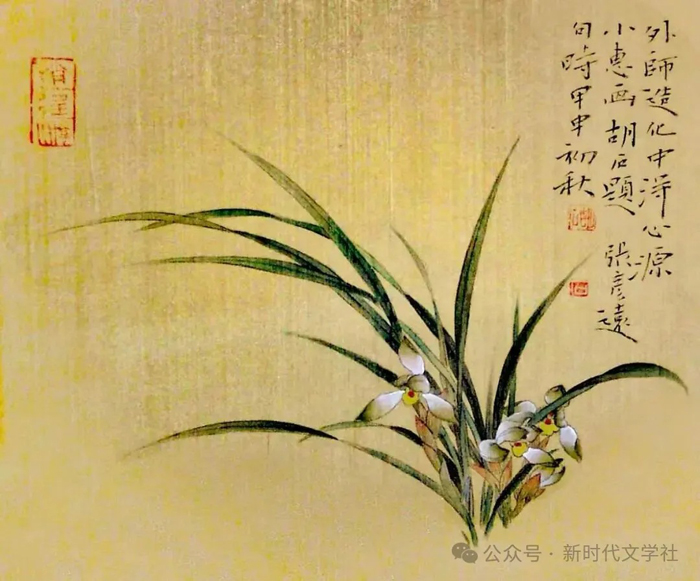 外師造化中淂心源
小惠画胡石題張彦遠
句時甲申初秋
公众号 · 新时代文学社